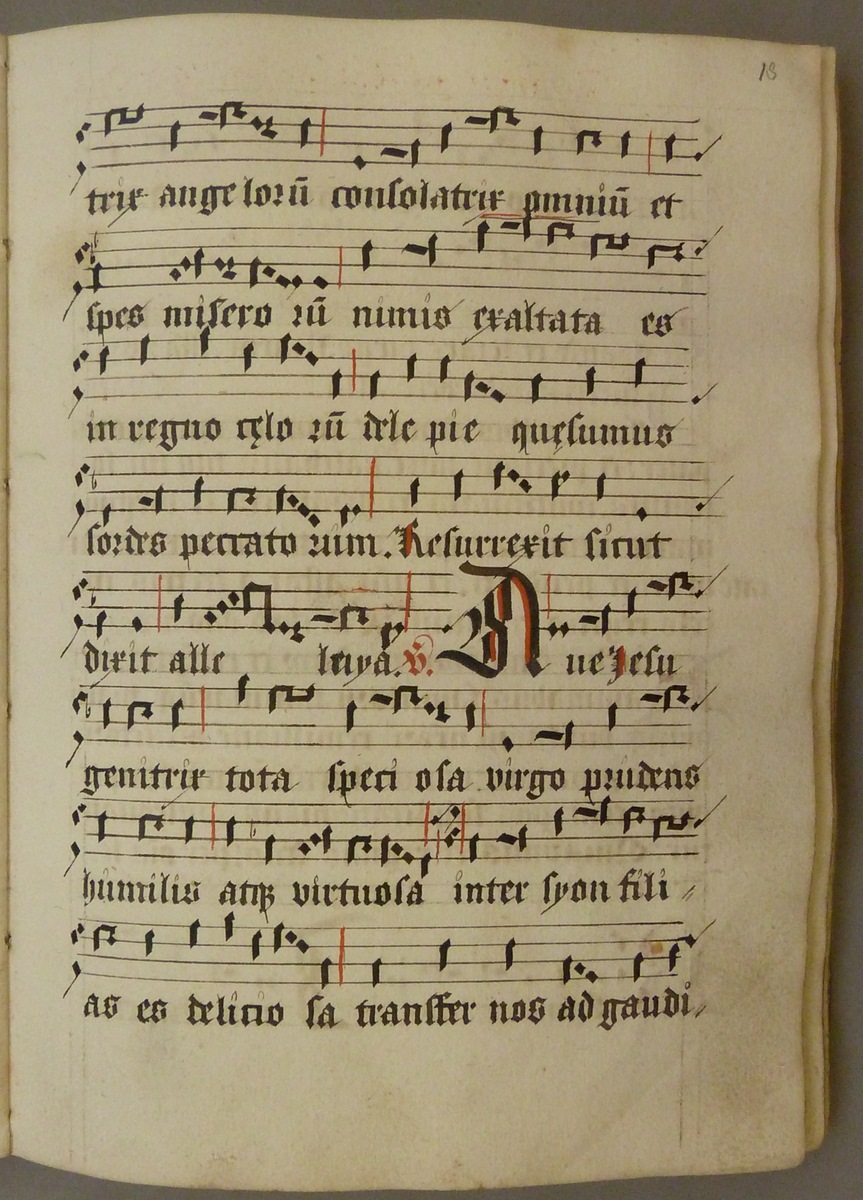 18
trix angelorū consolatrix omniū et
spes miserorū nimis exaltata es
in regno cęlorū dele pie quęsumus
sordes peccatorum. Resurrexit sicut
dixit alleluya. V. Aue Jesu
genitrix tota speciosa virgo prudens
humilis atqꝫ virtuosa inter syon fili⸗
as es deliciosa transfer nos ad gaudi⸗